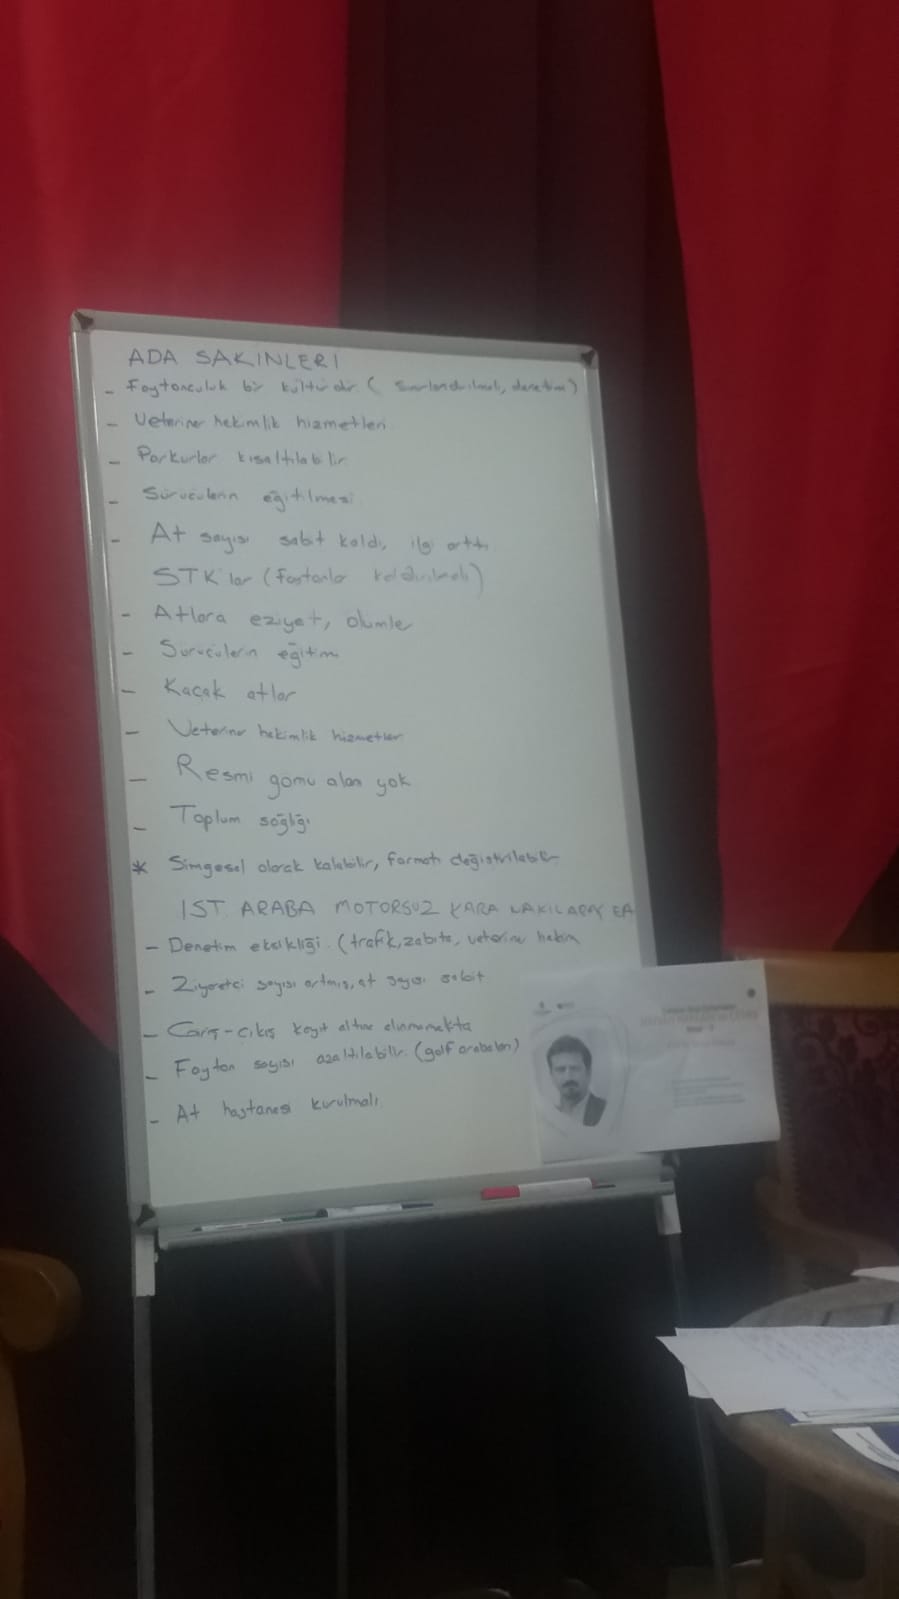 ADA SAKİNLERİ
- Faytonculuk bir kültürdür. ( Sınırlandırılmalı, denetim )
- Veteriner hekimlik hizmetleri
- Parkurlar kısaltılabilir
- Sürücülerin eğitilmesi
- At sayısı sabit kaldı, ilgi arttı
STK'lar (faytonlar kaldırılmalı)
- Atlara eziyet, ölümler
- Sürücülerin eğitimi
- Kaçak atlar
- Veteriner hekimlik hizmetleri
- Resmi gömü alan yok
- Toplum sağlığı
* Simgesel olarak kalabilir, formatı değiştirilebilir
IST. ARABA MOTORSUZ KARA
- Denetim eksikliği. (trafik, zabıta, veteriner hekim
- Ziyaretci sayısı artmış, at sayısı sabit
- Giriş-cıkış kayıt altına alınmamakta
- Fayton sayısı azaltılabilir. (golf arabaları)
- At hastanesi kurulmalı